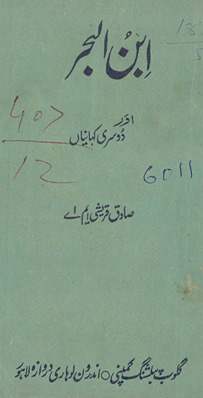 ابنُ البحر
اور
دُوسری کہانیاں
407
12
6011
صادق قریشی ایم اے
پبلشنگ کمپنی ○ اندرون لوہاری دروازہ لاہور